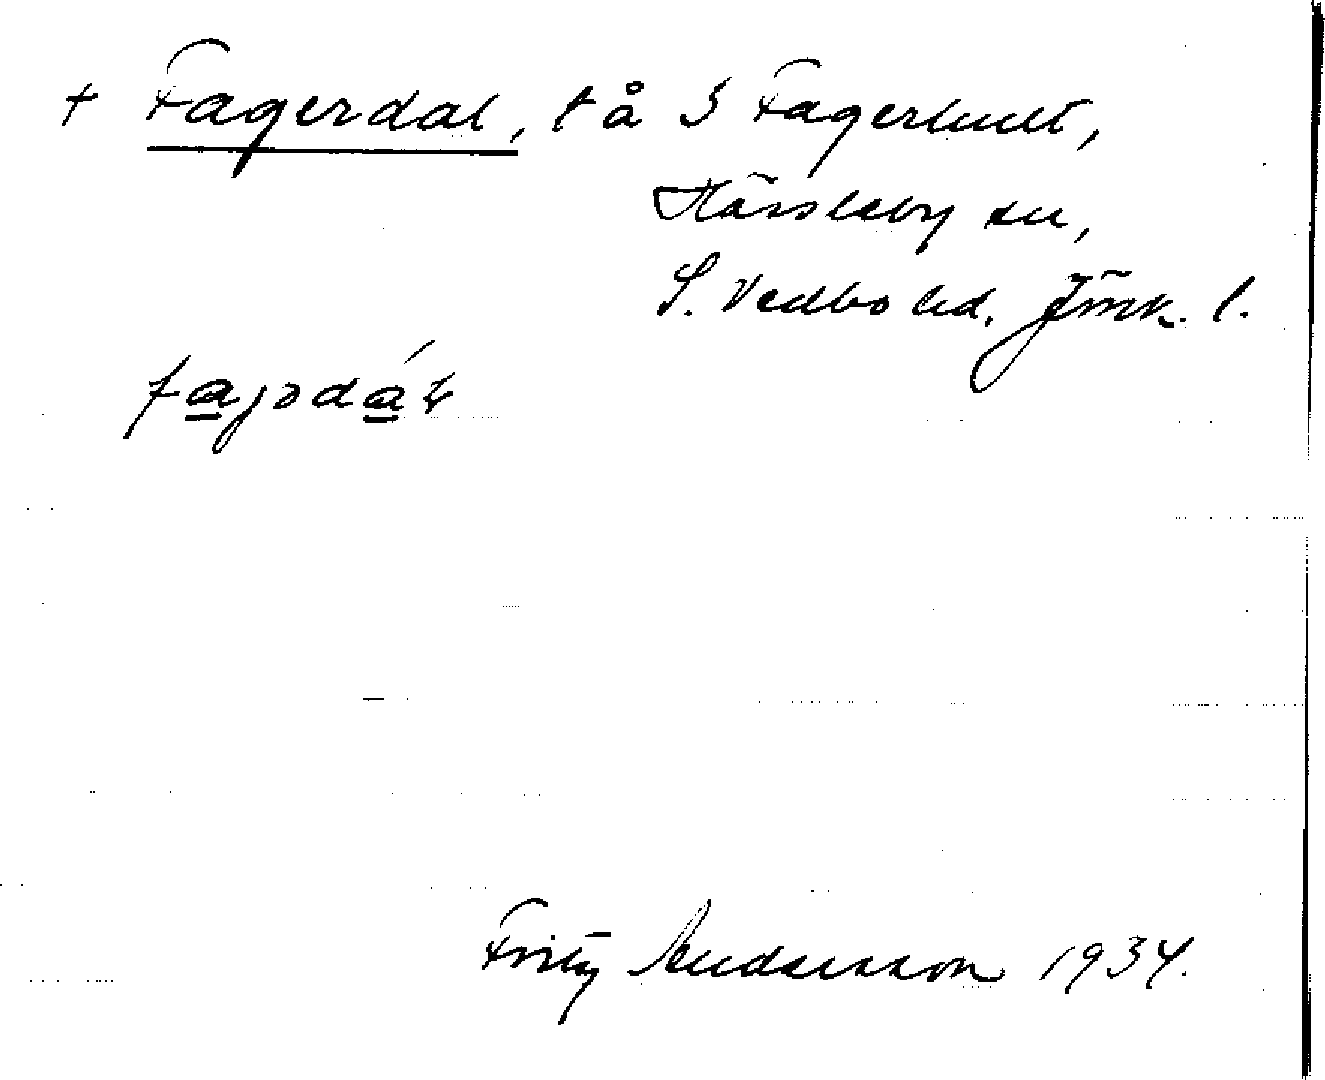 + Fagerdal, t å S Fagerhult,
Hässleby sn,
S. Vedbo hd. Jönk. l.
fajədál
Fritz Andersson 1934.